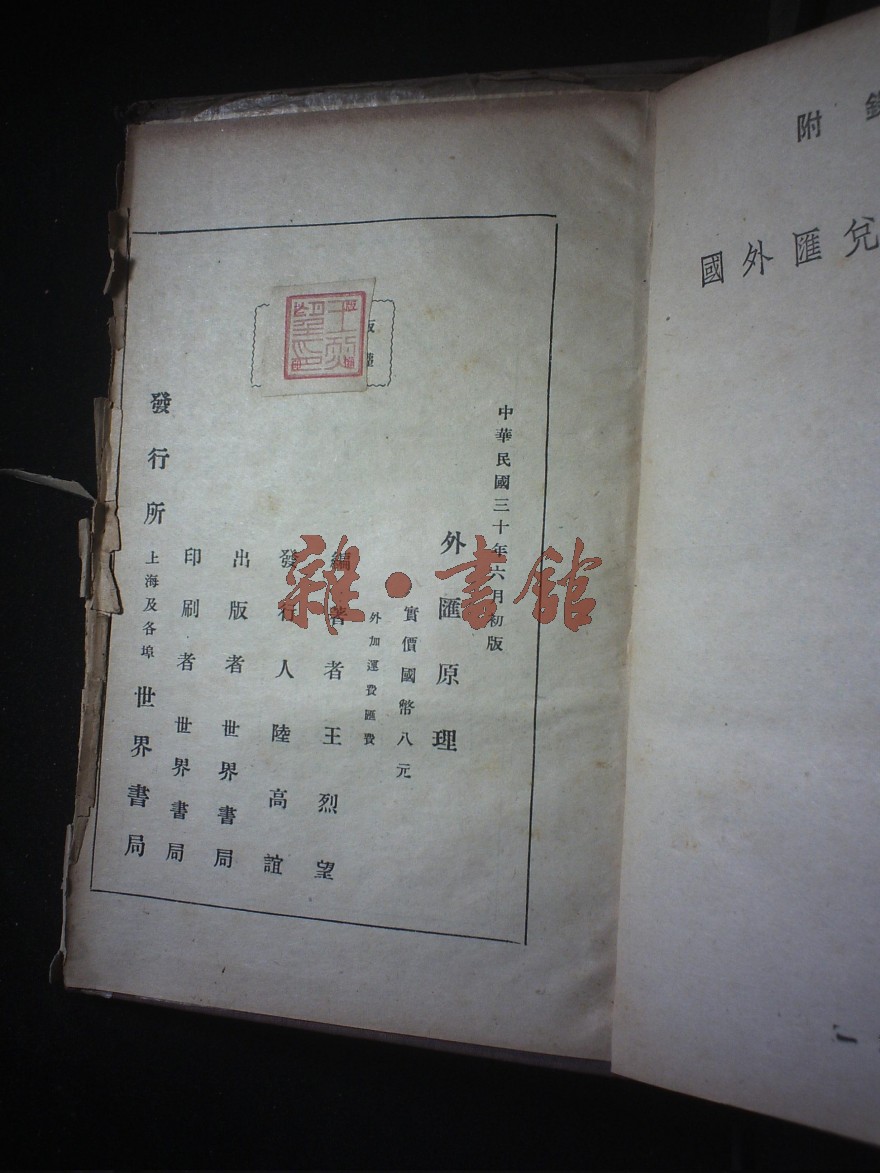 附錄
國外匯兌
中華民國三十年六月初版
外匯原理
實價國幣八元
外加運費匯費
編著者王烈望
發行人陸高誼
出版者世界書局
印刷者世界書局
發行所上海及各埠世界書局
版權
雜·書館